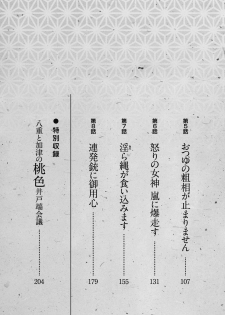 第5話 おつゆの粗相が止まりません 107
第6話 怒りの女神 嵐に爆走す 131
第7話 淫ら縄が食い込みます 155
第8話 連発銃に御用心 179
● 特別収録
八重と加津の桃色井戸端会議 204